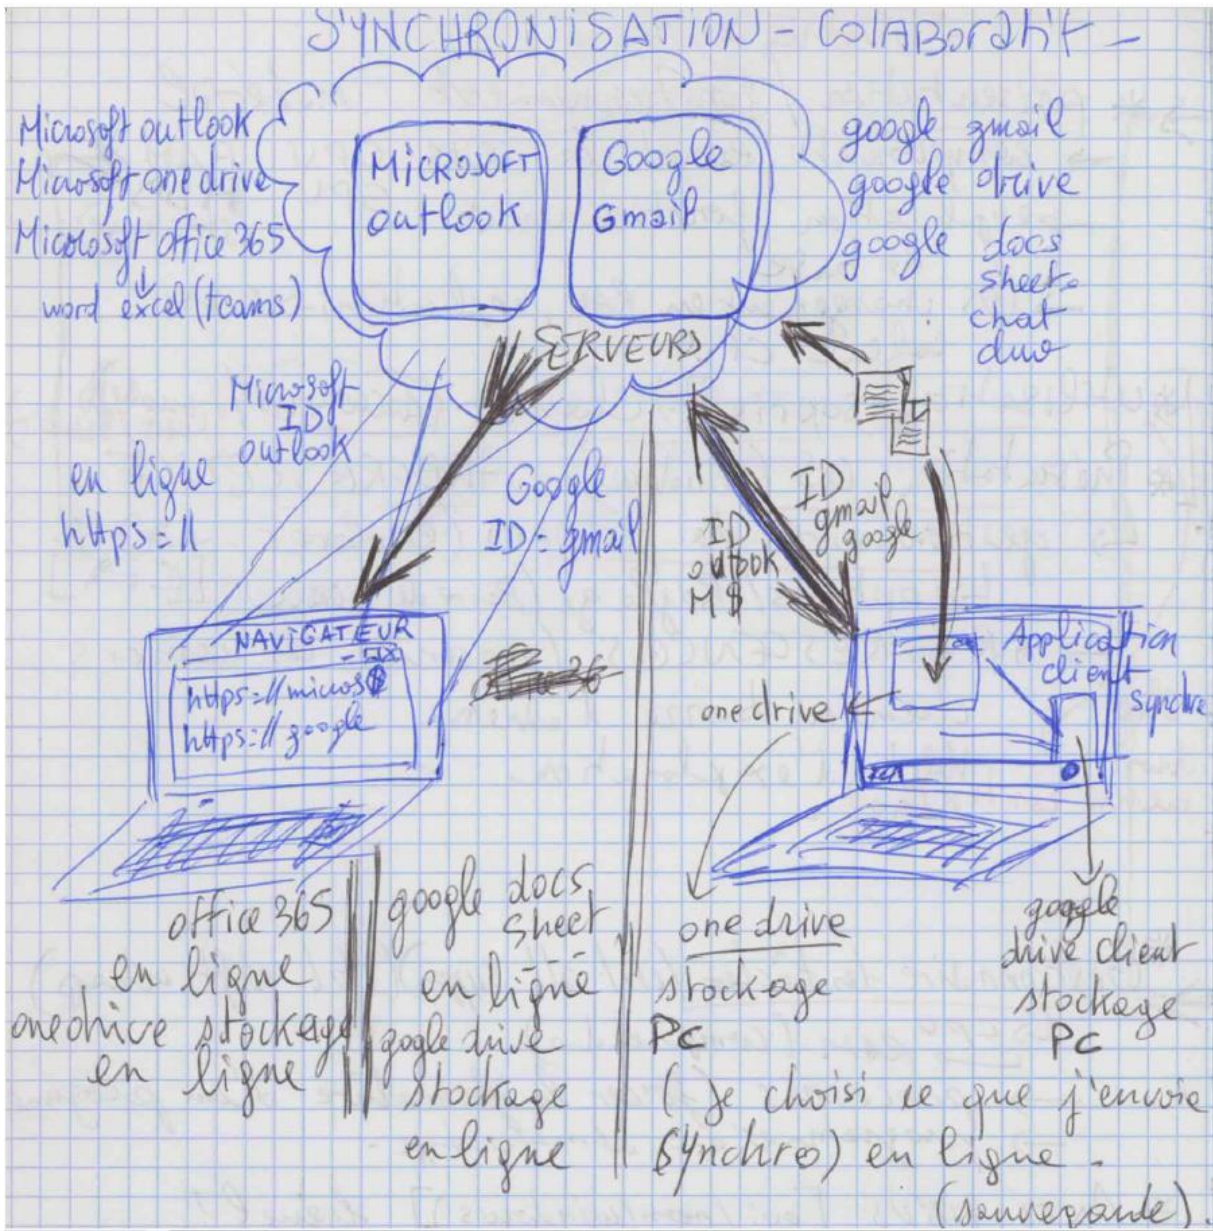 SYNCHRONISATION - COLABoratif -
Microsoft outlook
Microsoft one drive
Microsoft office 365
word excel (teams)
MICROSOFT
outlook
Google
Gmail
google gmail
google drive
google docs
sheet
chat
duo
SERVEURS
Microsoft
ID
outlook
en ligne
https=//
Google
ID = gmail
ID
outlook
M$
ID
gmail
google
NAVIGATEUR
https=//micros
https=//google
one drive
Application
client
synchro
office 365
en ligne
onedrive stockage
en ligne
google docs
sheet
en ligne
google drive
stockage
en ligne
one drive
stockage
PC
google
drive client
stockage
PC
( je choisi ce que j'envoie
synchro) en ligne -
(sauvegarde).